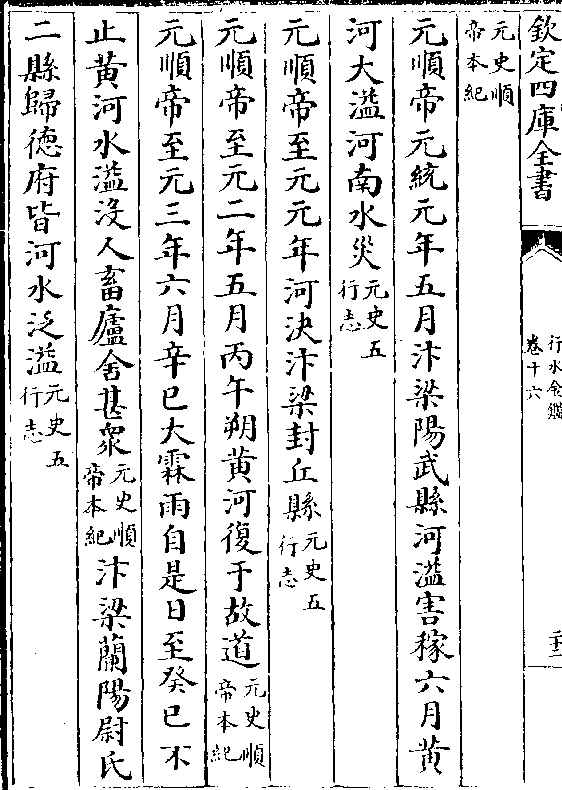 欽定四庫全書
行水金鑑
卷十六
二十二
元史順帝本紀
元順帝元統元年五月汴梁陽武縣河溢害稼六月黄
河大溢河南水災元史五行志
元順帝至元元年河決汴梁封丘縣元史五行志
元順帝至元二年五月丙午朔黄河復于故道元史順帝本紀
元順帝至元三年六月辛巳大霖雨自是日至癸巳不
止黄河水溢没人畜廬舍甚衆元史順帝本紀汴梁蘭陽尉氏
二縣歸德府皆河水泛溢元史五行志